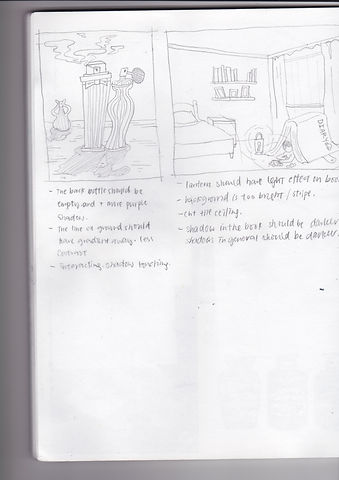 - The back bottle should be
empty and + more purple
shadow.
- The line on ground should
have gradient away - less
contrast
- Interacting shadow touching.
- lantern should have light effect on boo
- background is too bright / stripe.
- cut the ceiling.
- shadow in the book should be darker
shadows in general should be darker